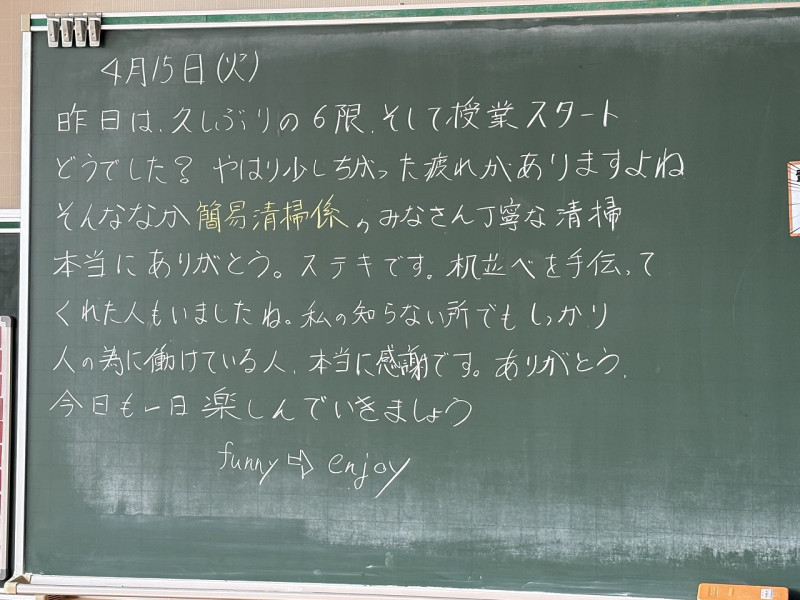 4月15日(火)
昨日は、久しぶりの6限、そして授業スタート
どうでした? やはり少しちがった疲れがありますよね
そんななか簡易清掃係のみなさん丁寧な清掃
本当にありがとう。ステキです。机並べを手伝って
くれた人もいましたね。私の知らない所でもしっかり
人の為に働けている人、本当に感謝です。ありがとう、
今日も一日楽しんでいきましょう
funny ⇨ enjoy